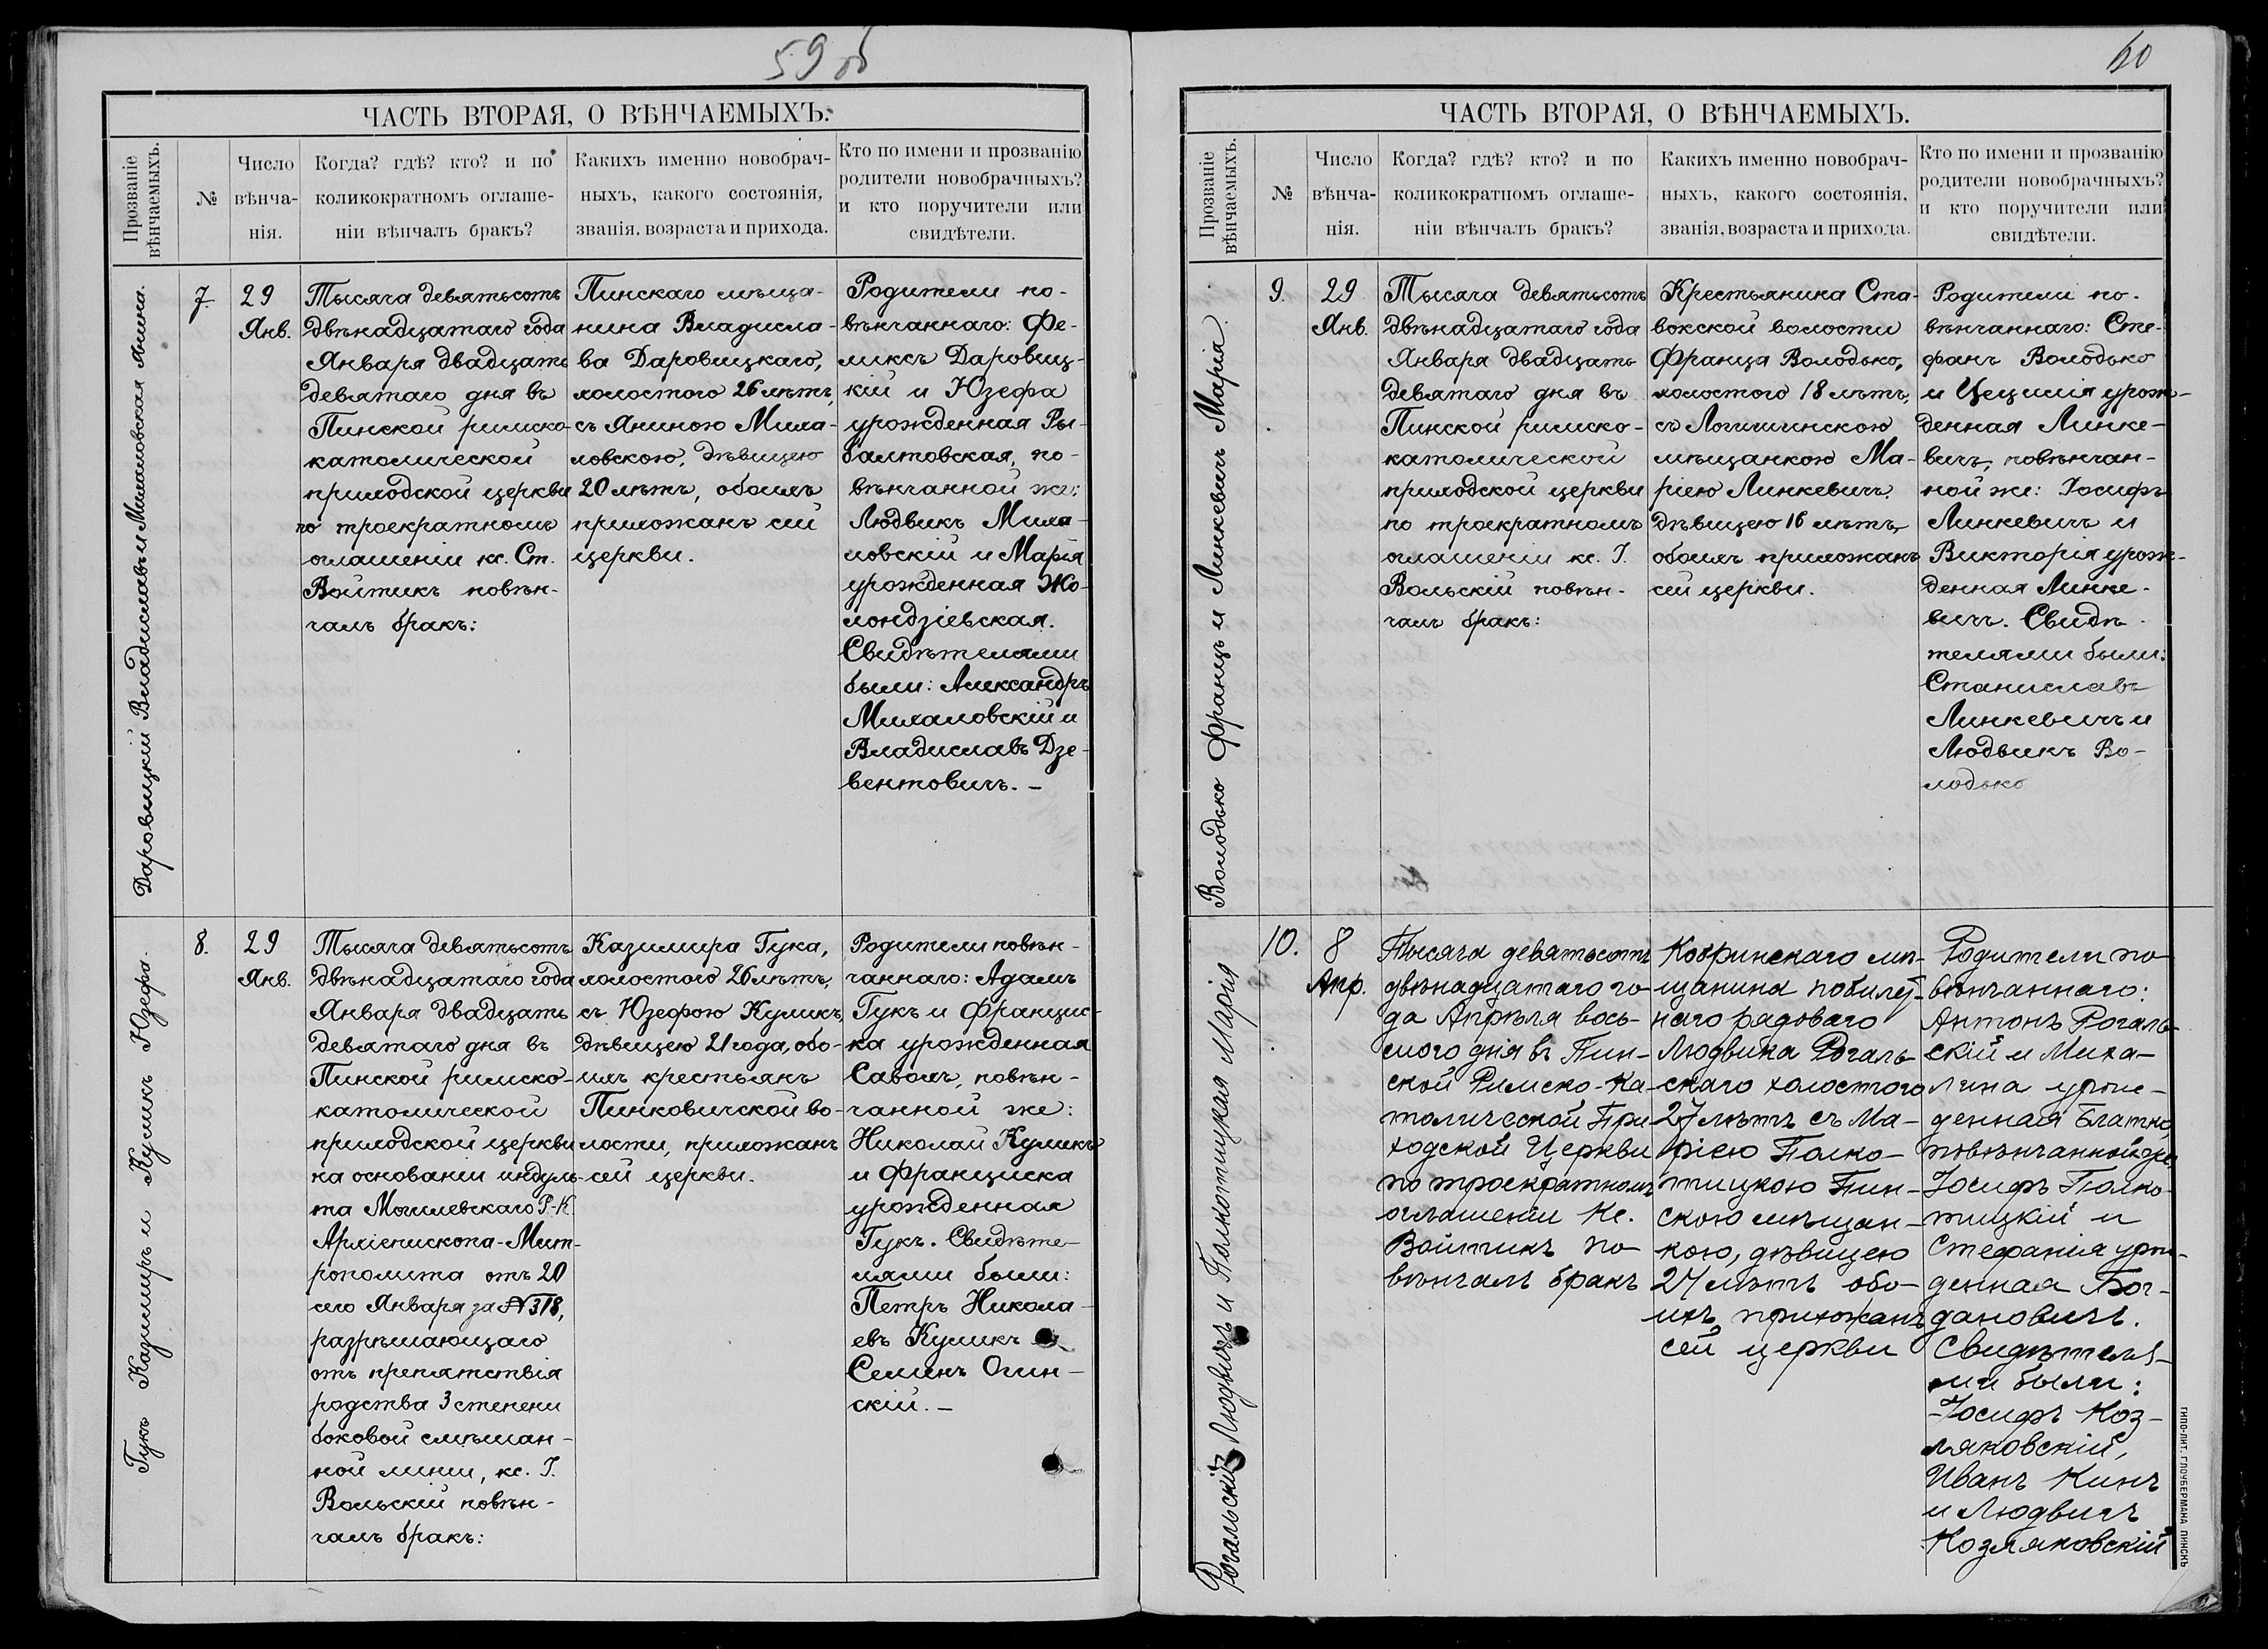 59 об
ЧАСТЬ ВТОРАЯ, О ВѢНЧАЕМЫХЪ.
Прозваніе
вѣнчаемыхъ.
№
Число
вѣнча-
нія.
Когда? гдѣ? кто? и по
коликократномъ оглаше-
ніи вѣнчалъ бракъ?
Какихъ именно новобрач-
ныхъ, какого состоянія,
званія, возраста и прихода.
Кто по имени и прозванію
родители новобрачныхъ?
и кто поручители или
свидѣтели.
Даровицкій Владиславъ и Миловская Янина.
7.
29
Янв.
Тысяча девятьсотъ
двѣнадцатаго года
Января двадцать
девятаго дня въ
Пинской римско-
католической
приходской церкви
по троекратномъ
оглашеніи кс. Ст.
Войтикъ повѣн-
чалъ бракъ:
Пинскаго мѣща-
нина Владисла-
ва Даровицкаго,
холостого 26 лѣтъ,
съ Яниною Мила-
ловскою, дѣвицею
20 лѣтъ, обоихъ
прихожанъ сей
церкви.
Родители по-
вѣнчаннаго: Фе-
ликсъ Даровиц-
кій и Юзефа
урожденная Ры-
балтовская, по-
вѣнчанной же:
Людвикъ Миха-
ловскій и Марія
урожденная Жо-
лондзіевская.
Свидѣтелями
были: Александръ
Михаловскій и
Владиславъ Дзе-
вентовичъ. –
Гукъ Казимиръ и Куликъ Юзефа.
8.
29
Янв.
Тысяча девятьсотъ
двѣнадцатаго года
Января двадцать
девятаго дня въ
Пинской римско-
католической
приходской церкви
на основаніи индуль-
та Могилевскаго Р-К
Архіепископа-Мит-
рополита отъ 20
сего Января за №318,
разрѣшающаго
отъ препятствія
родства 3 степени
боковой смѣшан-
ной линіи, кс. І.
Вольскій повѣн-
чалъ бракъ:
Казимира Гука,
холостого 26 лѣтъ,
съ Юзефою Куликъ,
дѣвицею 21 года, обо-
ихъ крестьянъ
Пинковичской во-
лости, прихожанъ
сей церкви.
Родители повѣн-
чаннаго: Адамъ
Гукъ и Францис-
ка урожденная
Саволъ, повѣн-
чанной же:
Николай Куликъ
и Франциска
урожденная
Гукъ. Свидѣте-
лями были:
Петръ Никола-
евъ Куликъ и
Семенъ Огин-
скій. –
60
ЧАСТЬ ВТОРАЯ, О ВѢНЧАЕМЫХЪ.
Прозваніе
вѣнчаемыхъ.
№
Число
вѣнча-
нія.
Когда? гдѣ? кто? и по
коликократномъ оглаше-
ніи вѣнчалъ бракъ?
Какихъ именно новобрач-
ныхъ, какого состоянія,
званія, возраста и прихода.
Кто по имени и прозванію
родители новобрачныхъ?
и кто поручители или
свидѣтели.
Володько Францъ и Линкевичъ Марія.
9.
29
Янв.
Тысяча девятьсотъ
двѣнадцатаго года
Января двадцать
девятаго дня въ
Пинской римско-
католической
приходской церкви
по троекратномъ
оглашеніи кс. І.
Вольскій повѣн-
чалъ бракъ:
Крестьянина Ста-
вокской волости
Франца Володько,
холостого 18 лѣтъ,
съ Логишинскою
мѣщанкою Ма-
ріею Линкевичъ,
дѣвицею 16 лѣтъ,
обоихъ прихожанъ
сей церкви.
Родители по-
вѣнчаннаго: Сте-
фанъ Володько
и Цецилія урож-
денная Линке-
вичъ, повѣнчан-
ной же: Іосифъ
Линкевичъ и
Викторія урож-
денная Линке-
вичъ. Свидѣ-
телями были:
Станиславъ
Линкевичъ и
Людвикъ Во-
лодько
Рогальскій Людвигъ и Полкотицкая Марія
10.
8
Апр.
Тысяча девятьсотъ
двѣнадцатаго го-
да Апрѣля вось-
мого дня въ Пин-
ской Римско-Ка-
толической При
ходской Церкви
по троекратномъ
оглашеніи Кс.
Войтикъ по-
вѣнчалъ бракъ
Кобринскаго мѣ-
щанина
наго рядоваго
Людвика Рогаль-
скаго холостого
27 лѣтъ съ Ма-
ріею Полко-
тицкою Пин-
скою мѣщан-
кою, дѣвицею
24 лѣтъ обо-
ихъ прихожанъ
сей церкви
Родители по
вѣнчаннаго:
Антонъ Рогаль-
скій и Миха-
лина урож-
денная
повѣнчанной же
Іосифъ Полко-
тицкій и
Стефанія урож-
денная Бог-
дановичъ.
Свидѣтеля-
ми были:
Іосифъ Коз-
ляковскій,
Иванъ Кинъ
и Людвигъ
Козляковскій
ТИПО-ЛИТ. ГЛОУБЕРМАНА ПИНСКЪ